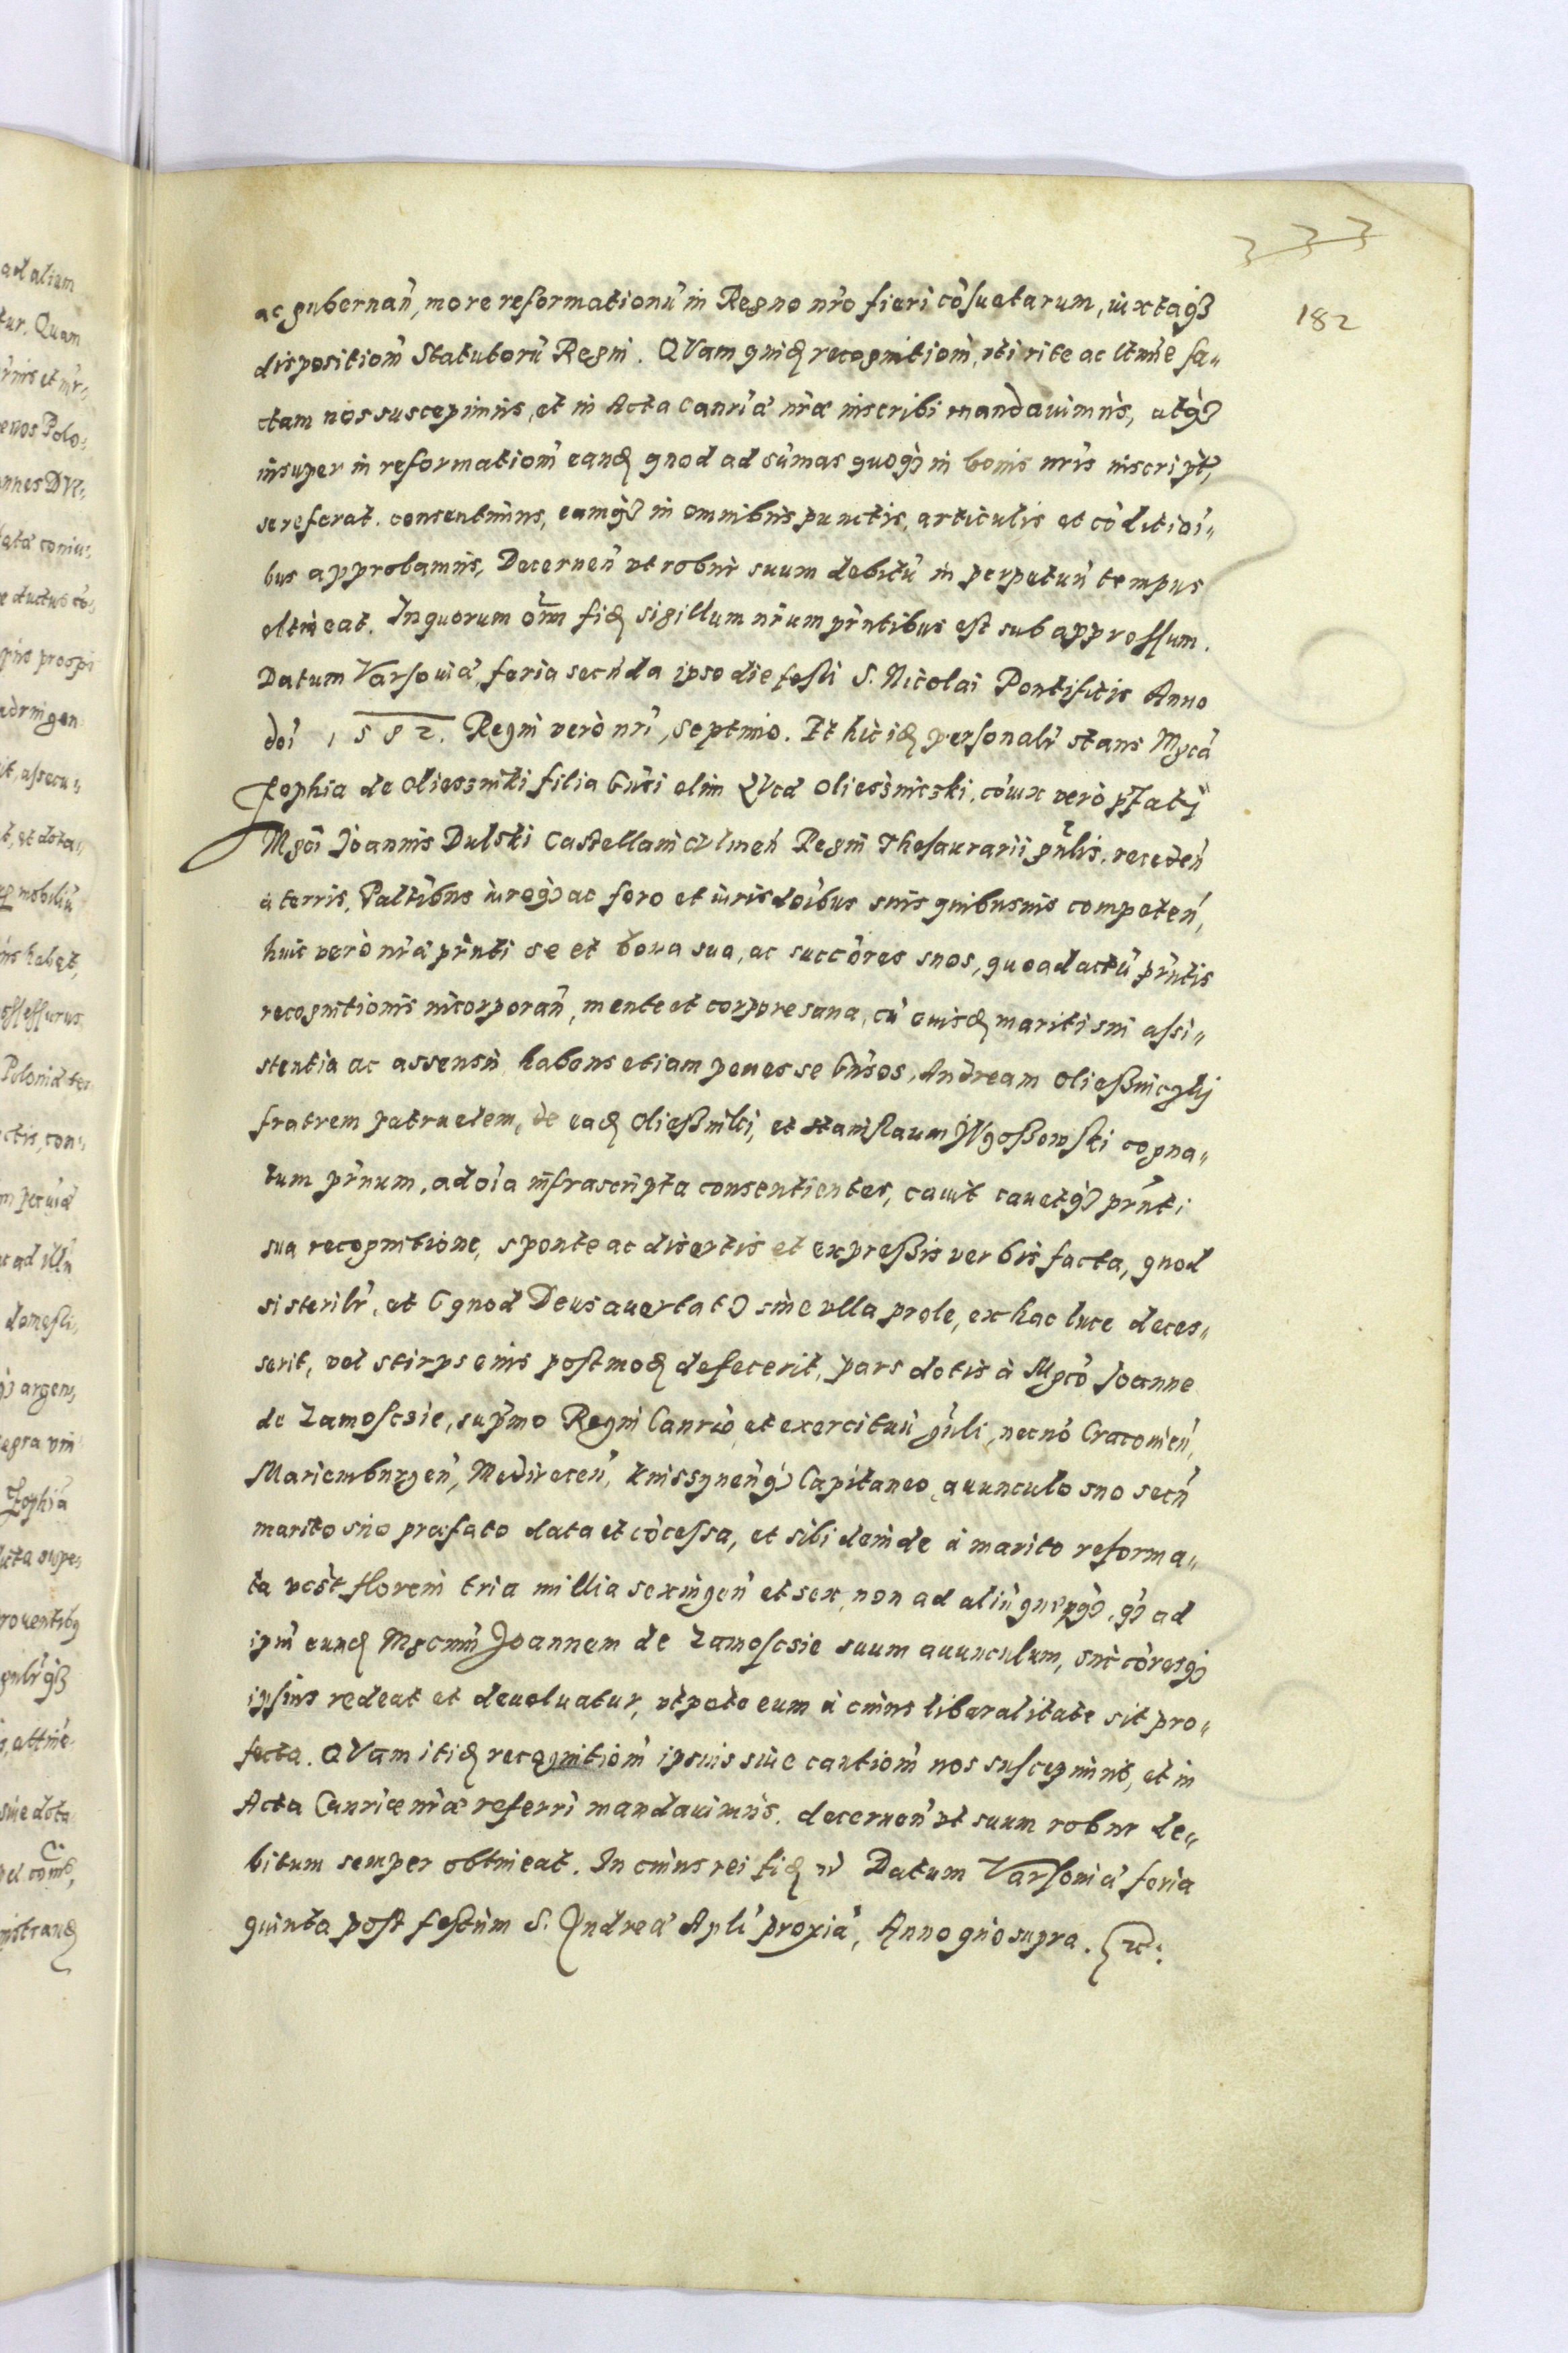 333
182
ac gubernan̄, more reformationū in Regno nr̄o fieri cōsuetarum, iuxtaq3
dispositiom̄ Statutorū Regni. QVam quid recognitiom̄, uti rite ac ltm̄e fa„
ctam nos suscepimus, et in Acta Canr̄iæ nr̄æ inscribi mandauimus, atq3
insuper in reformatiom̄ eand quod ad sūmas quoq3 in bonis nr̄is inscript,
se referat. consentimus, eamq3 in omnibus punctis, articulis et cōditioī„
bus approbamus, Decernen̄ vt robur suum debitū in perpetuū tempus
obtineat. In quorum om̄ fid sigillum nr̄um pr̄ntibus est sub appressum.
Datum Varsouiæ feria secūda ipso die festi S. Nicolai Pontificis Anno
doī 1582. Regni verò nrī, septimo. Et hic id personalr̄ stans Mgcā
Zophia de Oliessniki filia Gn̄si olim Oliessnicski, cōiux verò pfatj
Mgcī Joannis Dulski Castellani Culmen̄ Regni Thesaurarii gn̄lis, receden̄
a terris, Paltībus iureq3 ac foro et iurisdoībus suis quibusuis competen̄,
huic verò nr̄æ pr̄nti se et bona sua, ac succōres suos, quoad actū pr̄ntis
recognitionis incorporan̄, mente et corpore sana, cū euisd mariti sui assi„
stentia ac assensu habens etiam penes se Gn̄sos, Andream Oließniczkij
fratrem patruelem, de ead Oließniki, et Stanislaum Wgoßowski cogna„
tum pr̄num, ad oīa infrascripta consentientes, cauit cauetq3 pr̄nti
sua recognitione, sponte ac disertis et expreßis verbis facta, quod
si sterilr̄, et (quod Deus auertat) sine vlla prole, ex hac luce deces„
serit, vel stirps eius postmod defecerit, pars dotis à Mgcō Joanne
de Zamoscsie, sup̄mo Regni Canr̄io, et exercituū gn̄li, necnō Cracouien̄,
Mariemburgen̄, Medirecen̄, Knissynen̄q3 Capitaneo, auunculo suo secū
marito suo præfato data et cōcessa, et sibi deinde à marito reforma„
ta vcst florem̄ tria millia sexingen̄ et sex, non ad aliū quēpq3, q3 ad
ipm̄ eund Mgcum̄ Joannem de Zamoscsie suum auunculum, succōresq3
ipsius redeat et deuoluatur, vtpote cum à cuius liberalitate sit pro„
fecta. QVam itid recognitiom̄ ipsius siue cautiom̄ nos suscepimus, et in
Acta Canriæ nr̄æ referri mandauimus. decernen̄ vt suum robur de„
bitum semper obtineat. In cuius rei fid etc Datum Varsouiæ feria
quinta post festum S. Andreæ Apli proxiā, Anno quo supra. etc: